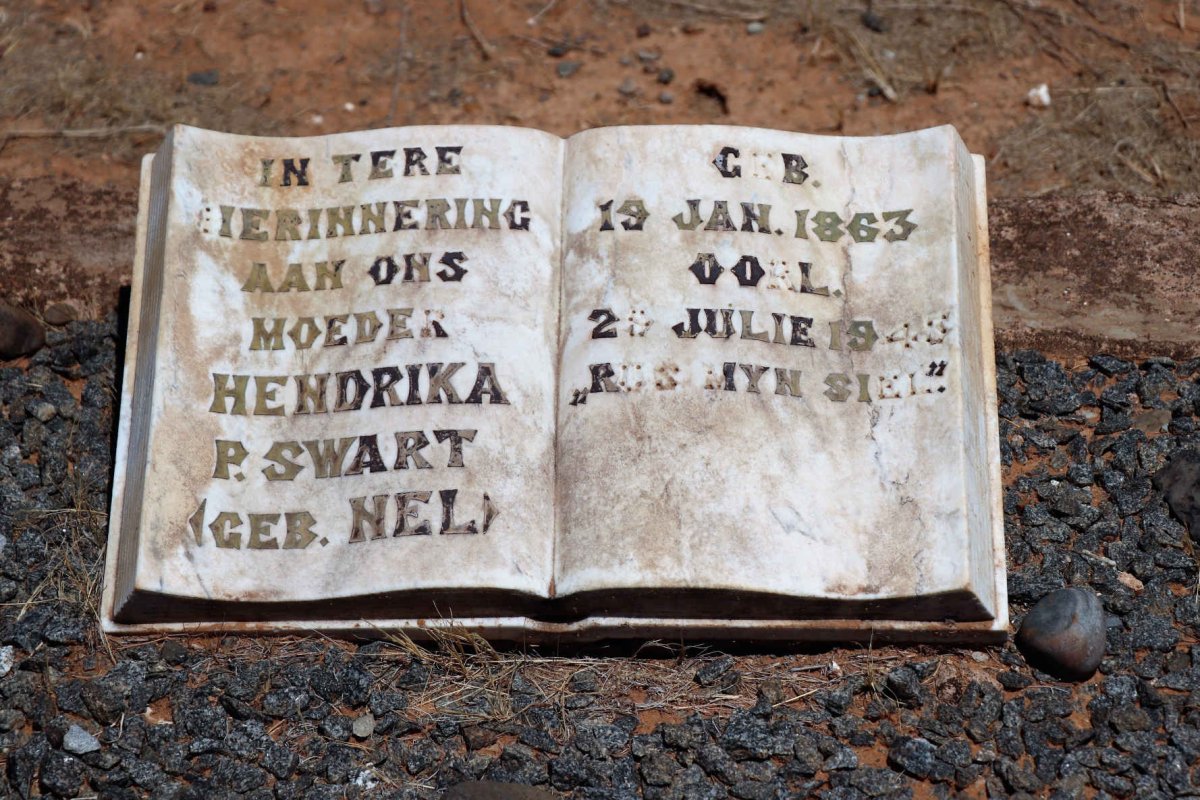 IN TERE
HERINNERING
AAN ONS
MOEDER
HENDRIKA
P. SWART
(GEB. NEL)
GEB.
19 JAN. 1863
OORL.
JULIE
„RUS MYN SIEL"